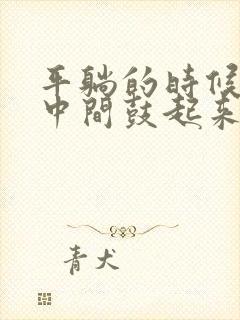 平躺的時候
中間鼓起來
青犬